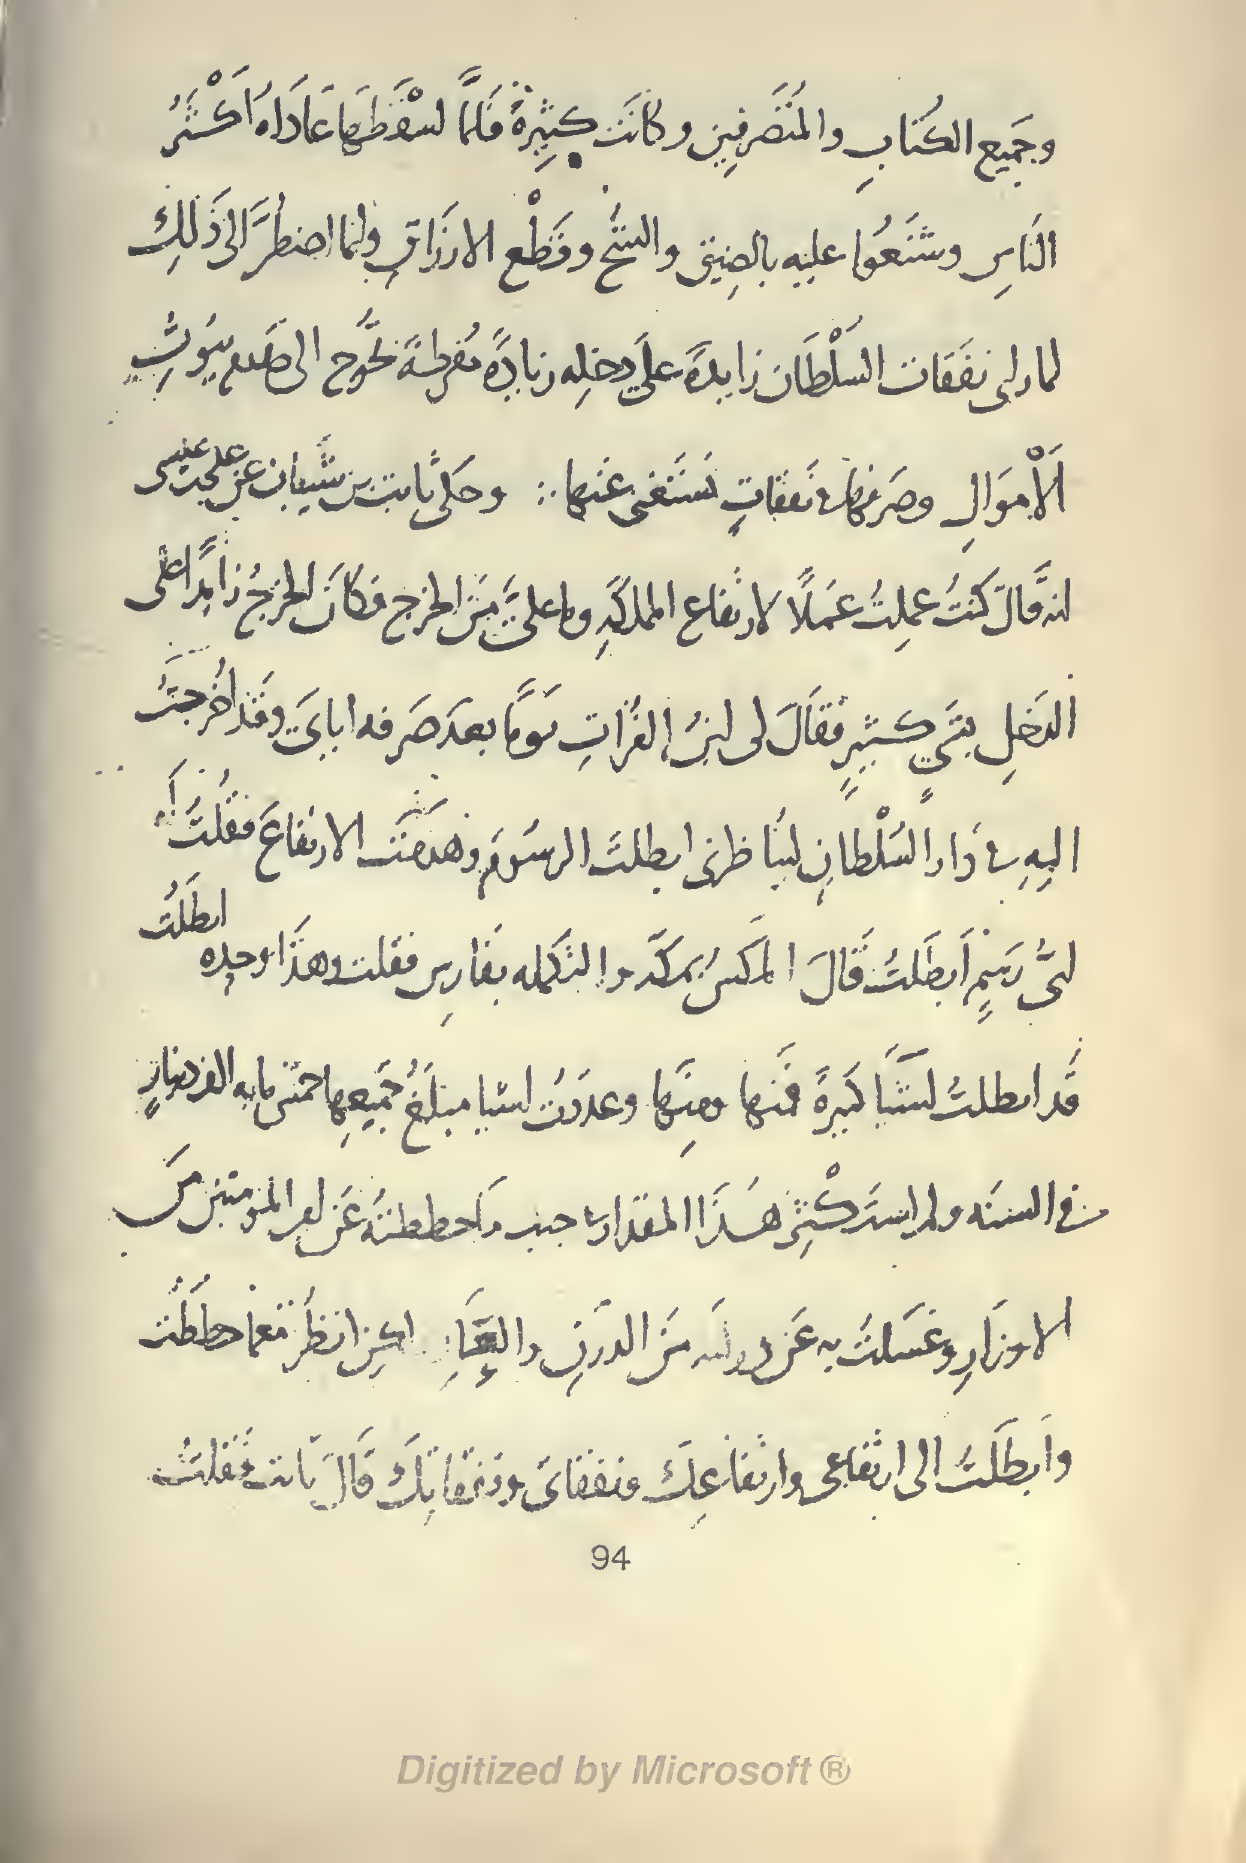 وجَميع الكُتابِ والمُتَصَرفِين وكانَت كَثِيرةً فلمَّا اسْقَطَها عَادَاه اكْثَرُ
النَاسِ وشَنَعُوا عليه بالضِيق والشُح وقَطْع الارزَاقِ وانما اضطُرَّ الى ذَلِكَ
لما راى نفَقَات السُلْطَان زايدةً على دخلِه زيادَةً مُفرطةً تُحوِج الى هدم بيُوتِ
الْأَموَالِ وصَرفها في نفقاتٍ يُستَغنى عنها ∴ وحَكَى ثابت بن سنان عن علي بن عيسى
انه قالَ كنتُ عمِلتُ عَمَلاً لارتفاع المملكَةِ وما عليَّ مِنَ الخرج فكانَ الخرجُ زايدًا على
الدَخلِ بشَيٍ كثيرٍ فقالَ لى ابنُ الفُراتِ يَومًا بعدَ صَرفه اياىَ وقَد اُخرجتُ
اليهِ في دَار السُلْطانِ ليُناظرنى ابطلتَ الرسُومَ وهدمتَ الارتفاعَ فقُلتُ له
اىَّ رَسمٍ أبطَلتُ قَالَ المَكسُ بمكَّة والتَكمله بفارس فقلت وهذَا وحده ابطَلتُ
قَد ابطلتُ اشيَا كَبيرةً فمنها ومِنها وعدَدتُ اشيا مبلَغُ جَميعِها خمس مايه الف دينارٍ
في السنه ولم استَكْثِر هَذَا المقدار في جنب ما حططتهُ عَن امير المومنين مِنَ
الاوزَارِ وغسَلتُ به عَن دولته مِنَ الدرَنِ والعَارِ لكِن انظُر معما حططت
وابطَلتُ الى ارتفاعى وارتفاعِكَ ونفقاتىَ ونفقاتِكَ قَالَ ثَابت فقلتُ
94
Digitized by Microsoft ®